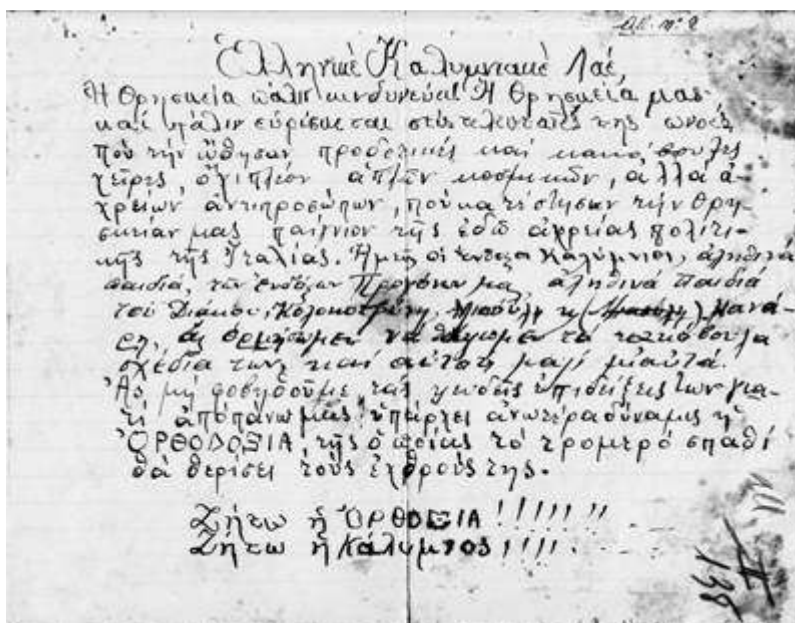 Ἑλληνικὲ Καλυμνιακὲ Λαέ,
Ἡ Θρησκεία πάλιν κινδυνεύει! Ἡ Θρησκεία μας
καὶ πάλιν εὑρίσκεται στὶς τελευταῖες της πνοές
ποὺ τὴν ὤθησαν προδοτικές καὶ κακόβουλες
χεῖρες, ὄχι πλέον ἁπλῶν κοσμικῶν, ἀλλὰ ἀ-
χρείων ἀντιπροσώπων, ποὺ κατέστησαν τὴν Θρη-
σκείαν μας παίγνιον τῆς ἐδῶ ἀχρείας πολιτι-
κῆς τῆς Ἰταλίας. Ἡμεῖς οἱ Καλύμνιοι, ἀληθινὰ
παιδιά, τῶν ἐνδόξων Προγόνων μας, ἀληθινὰ παιδιὰ
τοῦ Διάκου, Κολοκοτρώνη, Μιαούλη κ Κανά-
ρη, ἂς ὁρμήσωμεν νὰ θάψωμεν τὰ κακόβουλα
σχέδιά των καὶ αὐτοὺς μαζὶ μ' αὐτά.
Ἂς μὴ φοβηθοῦμε τὰς ψευδεῖς ἐπιδείξεις των για-
τὶ ἀπόπάνω μας ὑπάρχει ἀνωτέρα δύναμις ἡ
ὈΡΘΟΔΟΞΙΑ τῆς ὁποίας τὸ τρομερό σπαθί
θὰ θερίσει τοὺς ἐχθρούς της.
Ζήτω ἡ ὈΡΘΟΔΟΞΙΑ !!!!!!!
Ζήτω ἡ Κάλυμνος !!!!
138